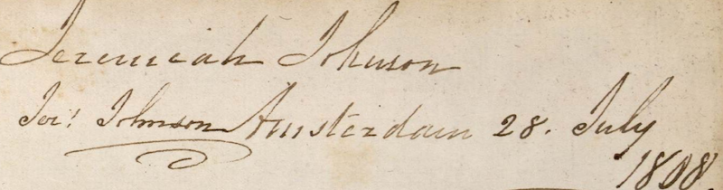 Jeremiah Johnson
Jer: Johnson Amsterdam 28. July
1808